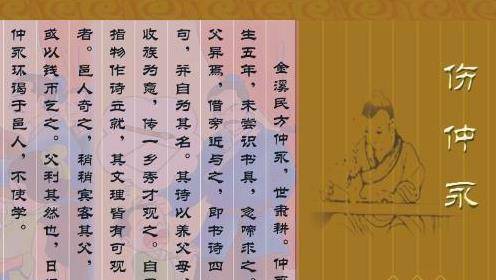 伤仲永
金溪民方仲永，世隶耕。仲永
生五年，未尝识书具，忽啼求之。
父异焉，借旁近与之，即书诗四
句，并自为其名。其诗以养父母、
收族为意，传一乡秀才观之。自
指物作诗立就，其文理皆有可观
者。邑人奇之，稍稍宾客其父，
或以钱币乞之。父利其然也，日
仲永环谒于邑人，不使学。